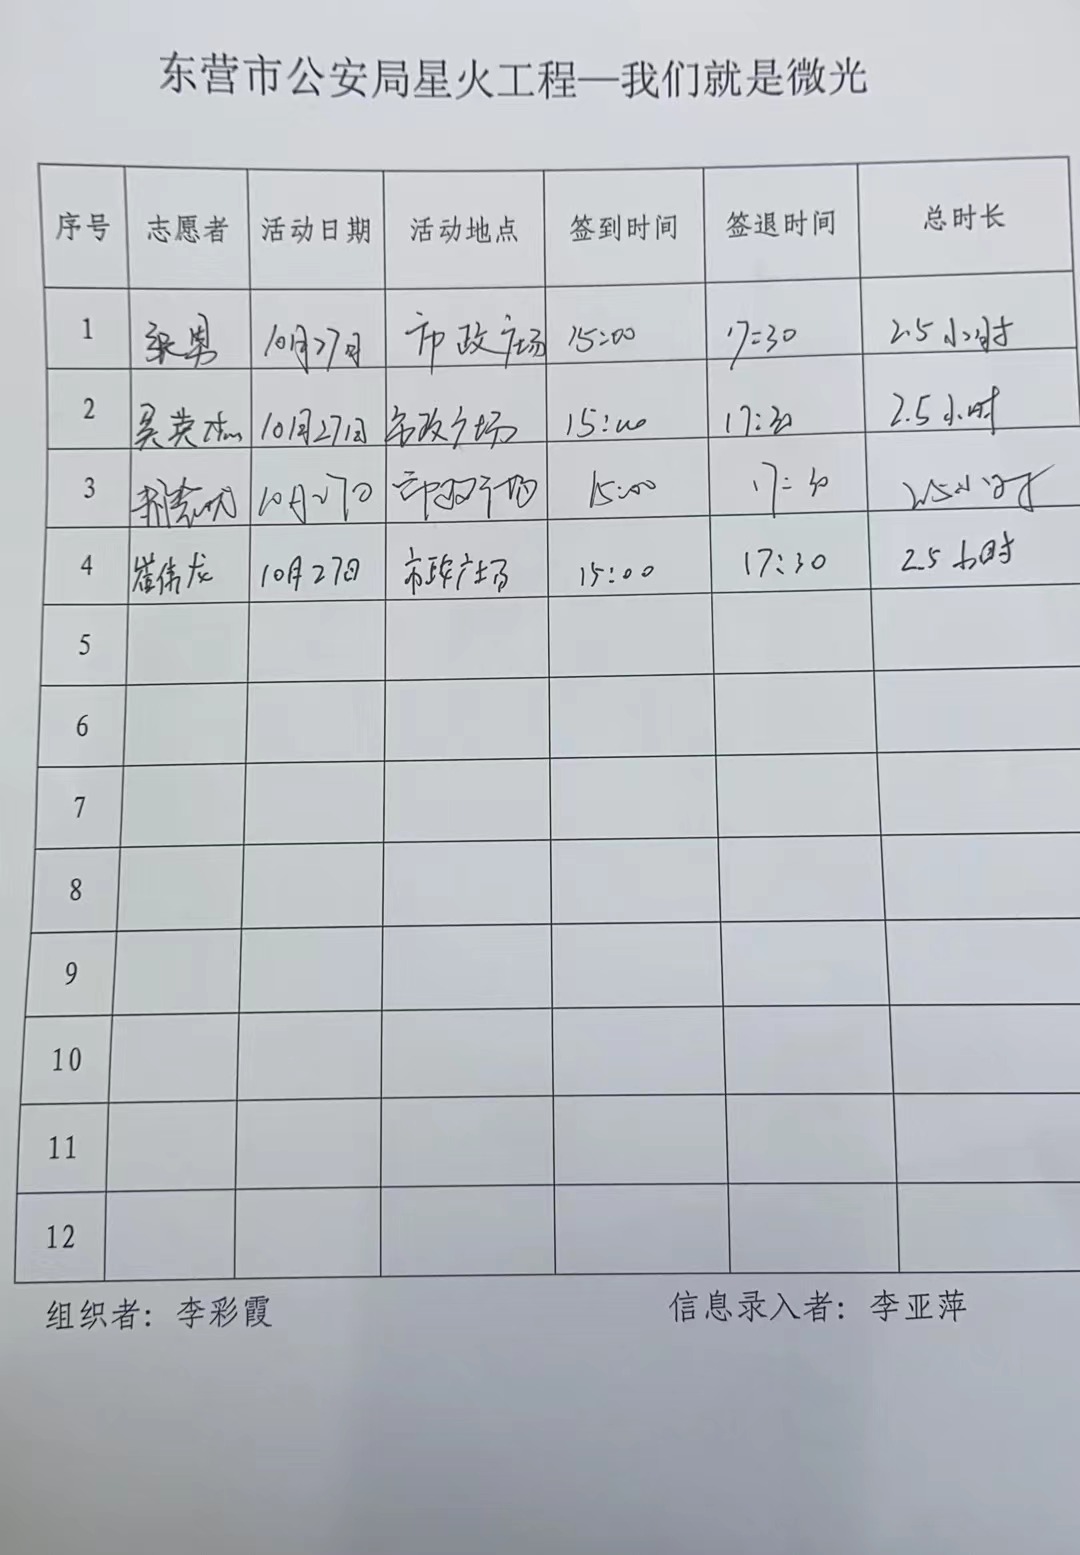 东营市公安局星火工程—我们就是微光
序号 志愿者 活动日期 活动地点 签到时间 签退时间 总时长
1 梁男 10月27日 市政广场 15:00 17:30 2.5小时
2 吴英杰 10月27日 市政广场 15:00 17:30 2.5小时
3 10月27日 市政广场 15:00 17:30 2.5小时
4 崔伟龙 10月27日 市政广场 15:00 17:30 2.5小时
5
6
7
8
9
10
11
12
组织者：李彩霞 信息录入者：李亚萍